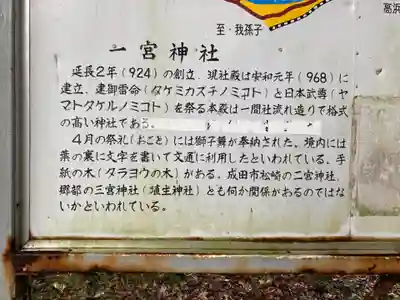 至・我孫子
高浜
一宮神社
延長2年(924)の創立、現社殿は安和元年(968)に
建立、建御雷命(タケミカズチノミコト)と日本武尊(ヤ
マトタケルノミコト)を祭る本殿は一間社流れ造りで格式
の高い神社である。
4月の祭礼(おこと)には獅子舞が奉納された。境内には
葉の裏に文字を書いて文通に利用したといわれている。手
紙の木(タラヨウの木)がある。成田市松崎の二宮神社
郷部の三宮神社(埴生神社)とも何か関係があるのではな
いかといわれている。